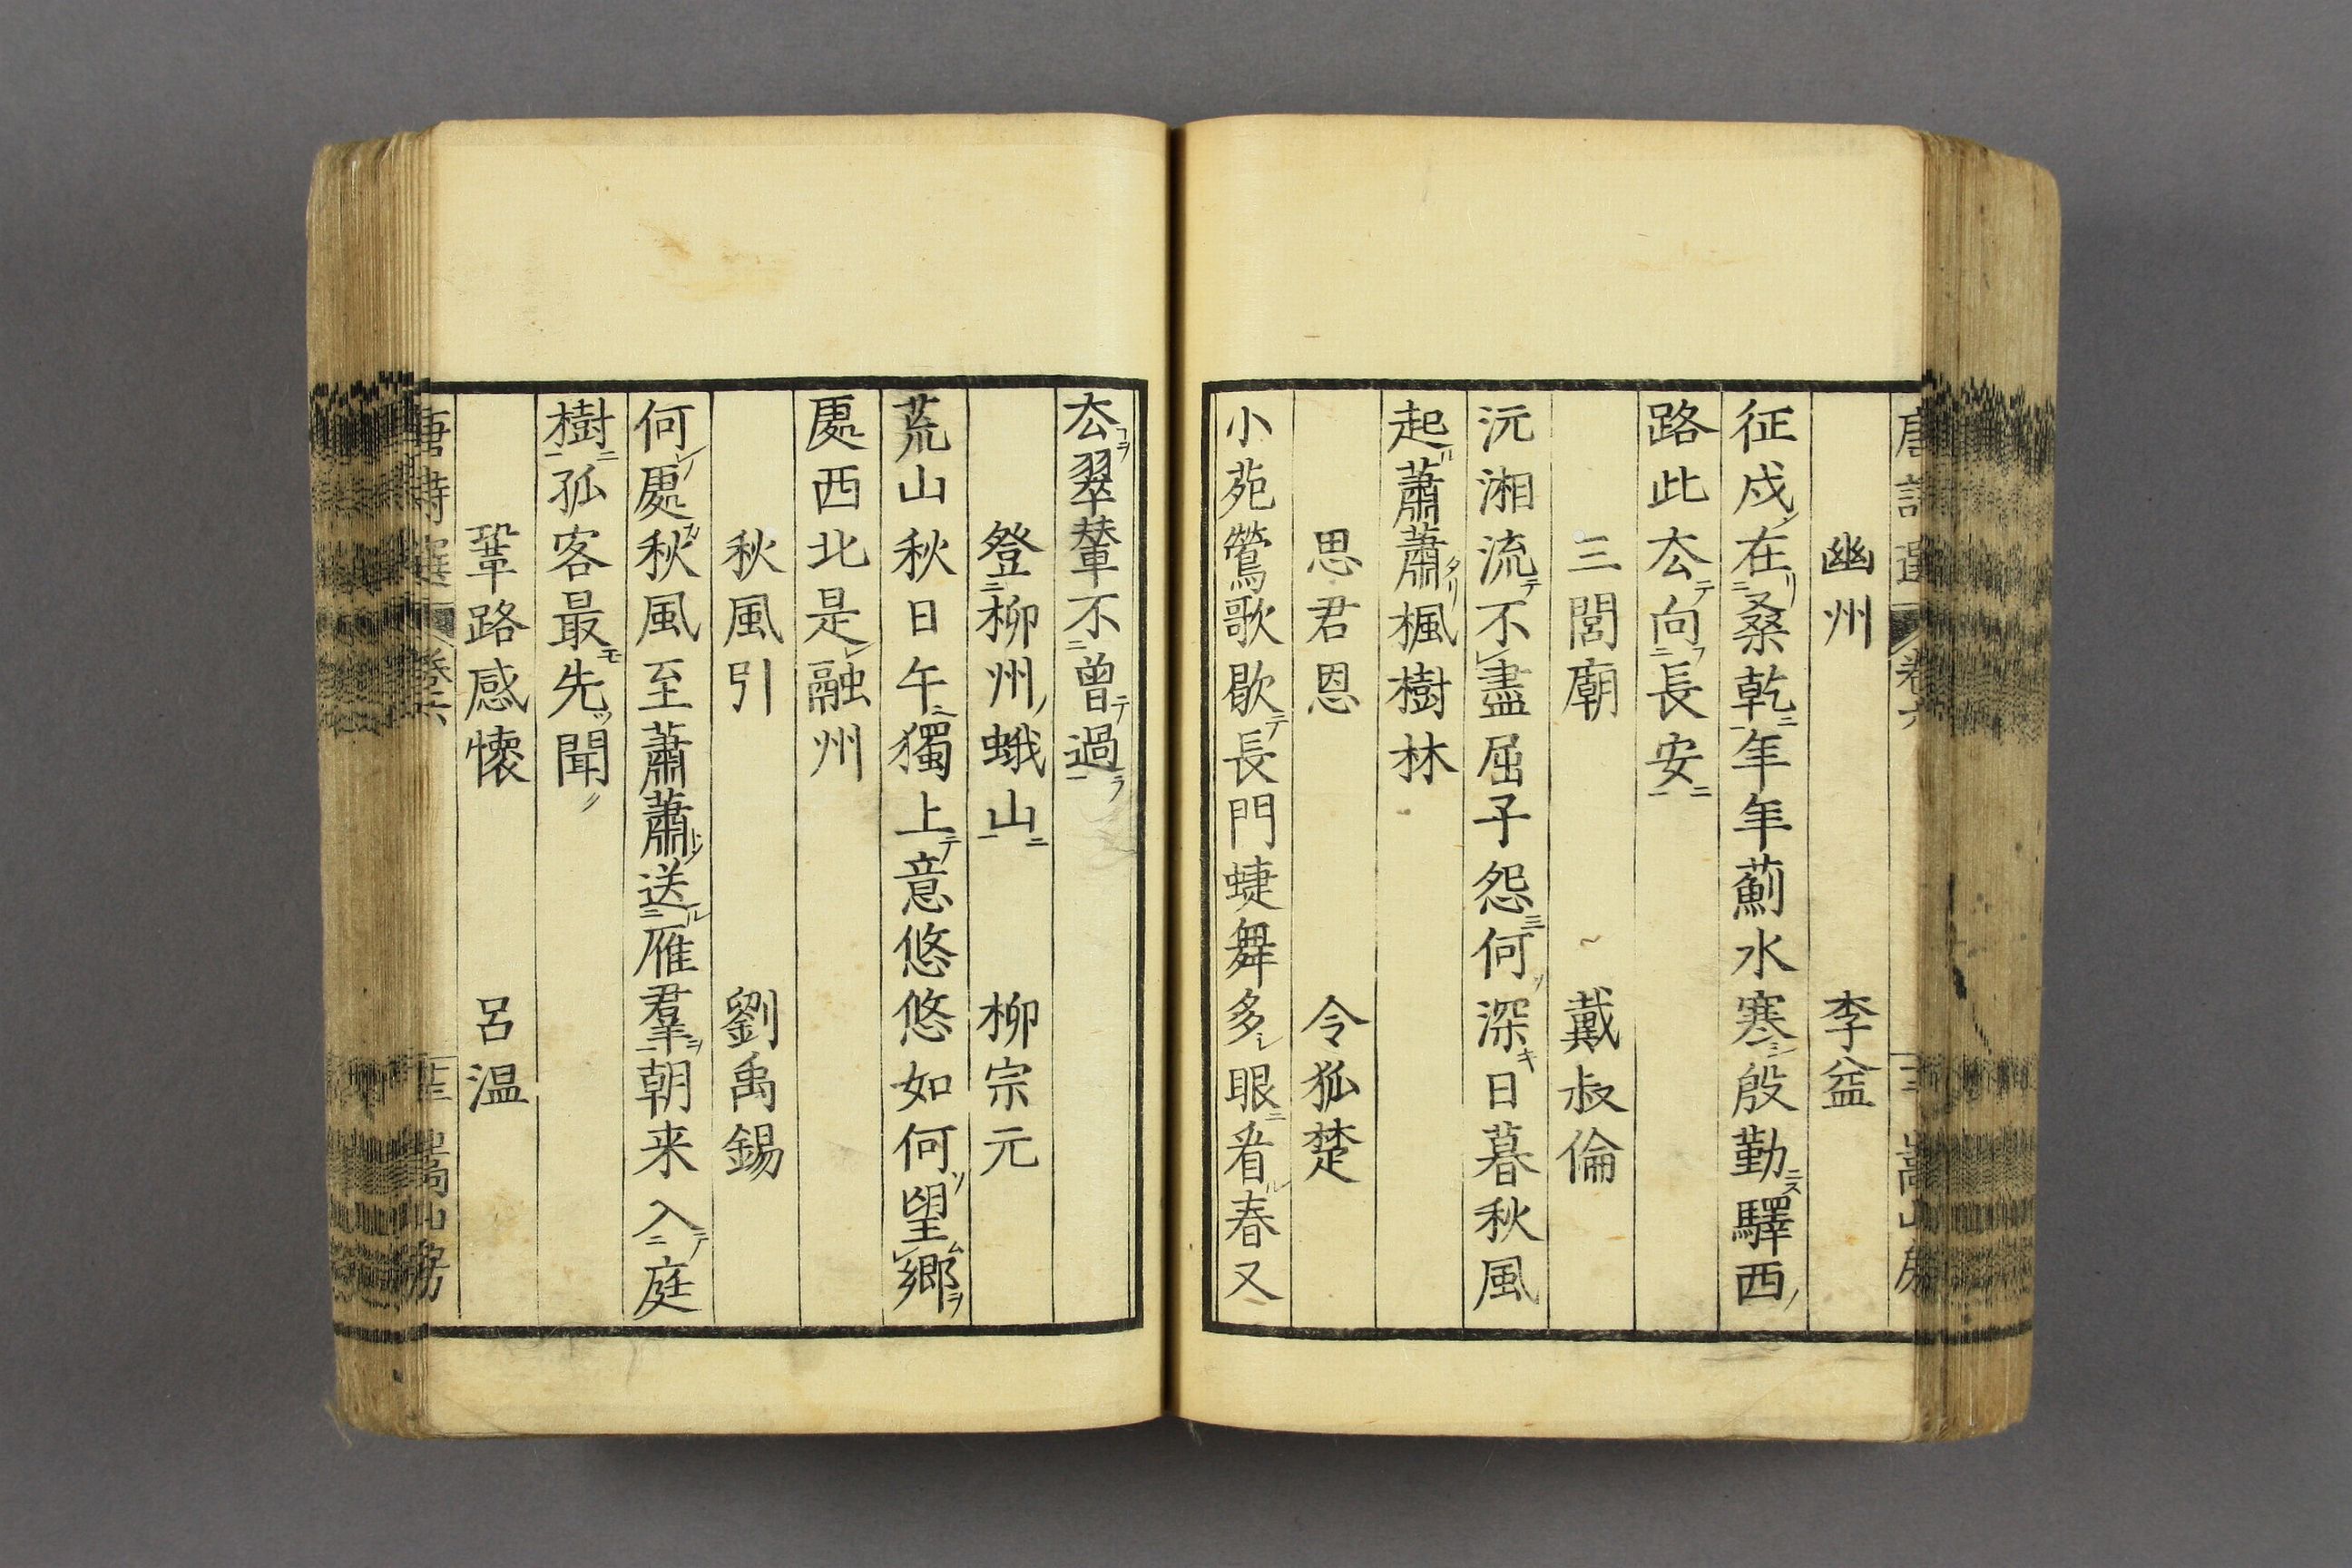 唐詩選 卷六 嵩山房
幽州 李益
征戍在桑乾年年薊水寒殷勤驛西
路此厺向長安
三閭廟 戴叔倫
沅湘流不盡屈子怨何深日暮秋風
起蕭蕭楓樹林
思君恩 令狐楚
小苑鶯歌歇長門蜨舞多眼看春又
厺翠輦不曾過
登柳州蛾山 柳宗元
荒山秋日午獨上意悠悠如何望鄉
處西北是融州
秋風引 劉禹錫
何處秋風至蕭蕭送雁羣朝来入庭
樹孤客最先聞
鞏路感懷 呂温
唐詩選 卷六 嵩山房